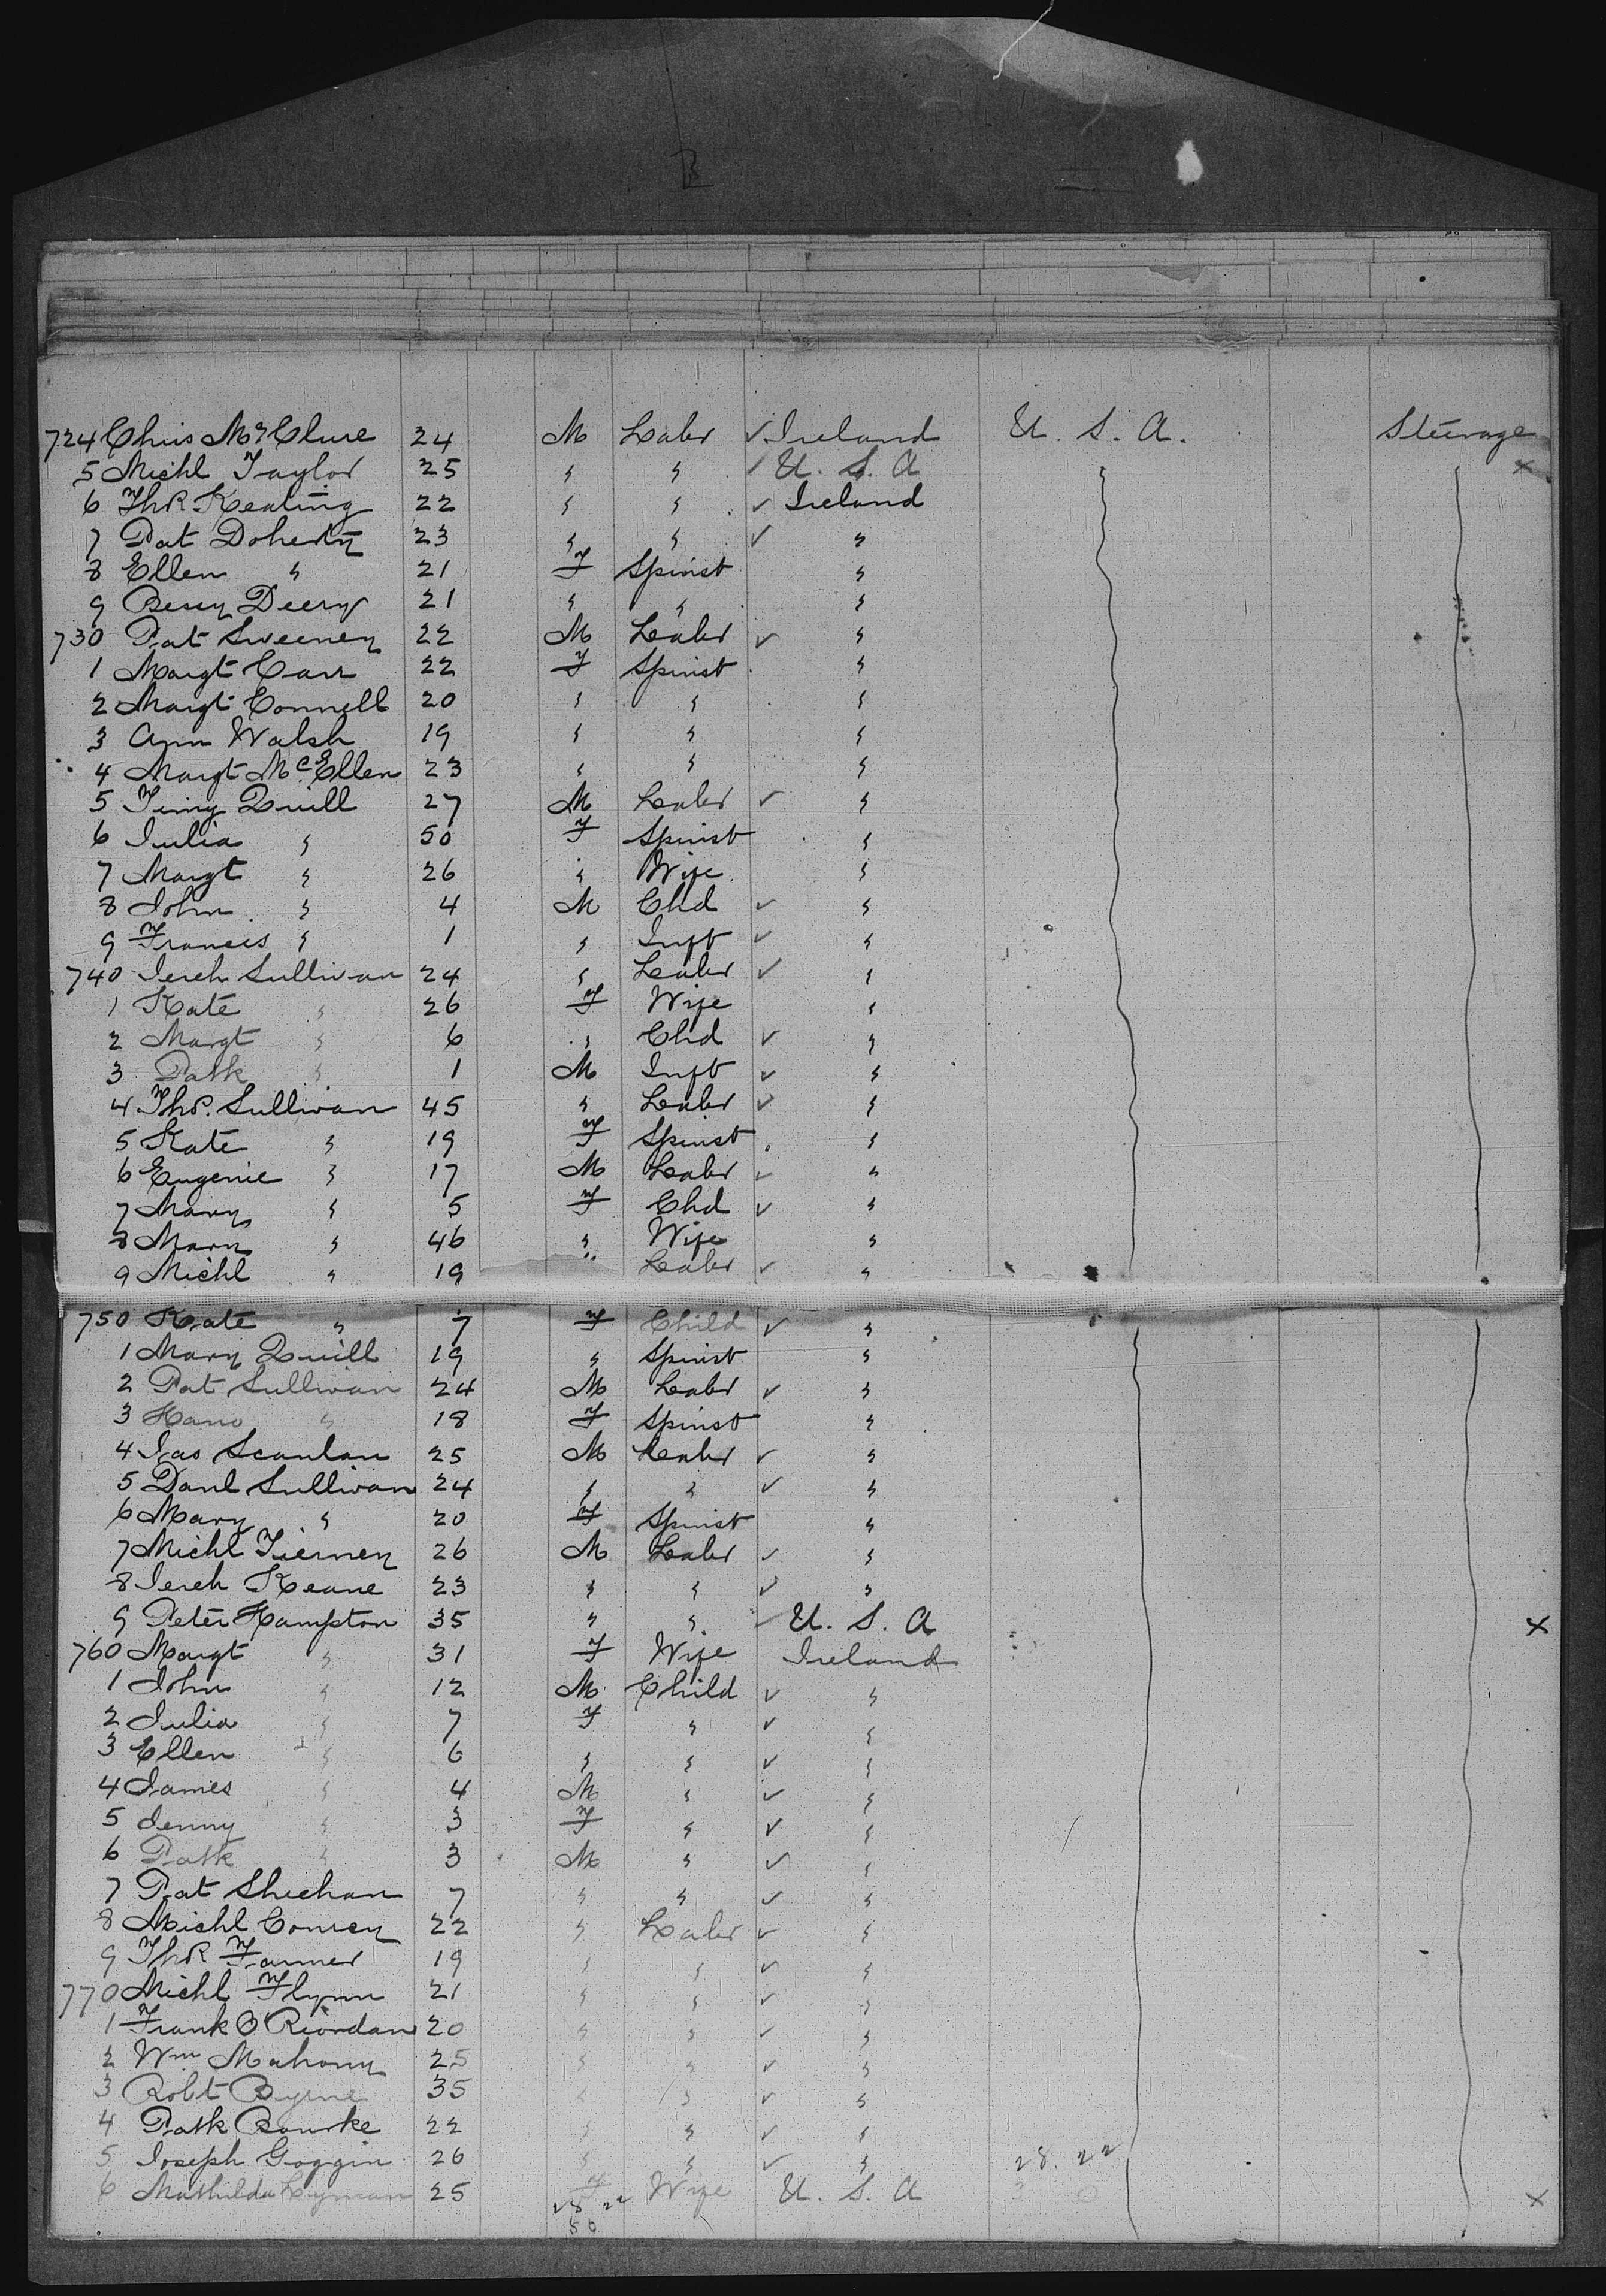 B
724 Chris McClure 24 M Labr ✓ Ireland U. S. A. Steerage
5 Michl Taylor 25 " " ✓ U. S. A x
6 Thos Keating 22 " " ✓ Ireland
7 Pat Doherty 23 " " ✓ "
8 Ellen " 21 F Spinst "
9 Bessy Deery 21 " " "
730 Pat Sweeney 22 M Labr ✓ "
1 Margt Carr 22 F Spinst "
2 Margt Connell 20 " " "
3 Ann Walsh 19 " " "
4 Margt McEllen 23 " " "
5 Timy Quill 27 M Labr ✓ "
6 Julia " 50 F Spinst "
7 Margt " 26 " Wife "
8 John " 4 M Chd ✓ "
9 Francis " 1 " Inft ✓ "
740 Jereh Sullivan 24 " Labr ✓ "
1 Kate " 26 F Wife "
2 Margt " 6 " Chd ✓ "
3 Patk " 1 M Inft ✓ "
4 Thos. Sullivan 45 " Labr ✓ "
5 Kate " 19 F Spinst "
6 Eugenie " 17 M Labr ✓ "
7 Mary " 5 F Chd ✓ "
8 Mary " 46 " Wife "
9 Michl " 19 Labr ✓ "
750 Kate " 7 F Child ✓ "
1 Mary Quill 19 " Spinst "
2 Pat Sullivan 24 M Labr ✓ "
3 Hano " 18 F Spinst "
4 Jas Scanlan 25 M Labr ✓ "
5 Danl Sullivan 24 " " ✓ "
6 Mary " 20 F Spinst "
7 Michl Tierney 26 M Labr ✓ "
8 Jereh Keane 23 " " ✓ "
9 Peter Hampton 35 " " ✓ U. S. A x
760 Margt " 31 F Wife Ireland
1 John " 12 M Child ✓ "
2 Julia " 7 F " ✓ "
3 Ellen " 6 " " ✓ "
4 James " 4 M " ✓ "
5 Jenny " 3 F " ✓ "
6 Patk " 3 M " ✓ "
7 Pat Sheehan 7 " " ✓ "
8 Michl Comey 22 " Labr ✓ "
9 Thos Farmer 19 " " ✓ "
770 Michl Flynn 21 " " ✓ "
1 Frank O'Riordan 20 " " ✓ "
2 Wm Mahony 25 " " ✓ "
3 Robt Byrne 35 " " ✓ "
4 Patk Bourke 22 " " ✓ "
5 Joseph Goggin 26 " " ✓ " 28. 22
6 Mathilda Lyman 25 F Wife U. S. A x
28 22
50